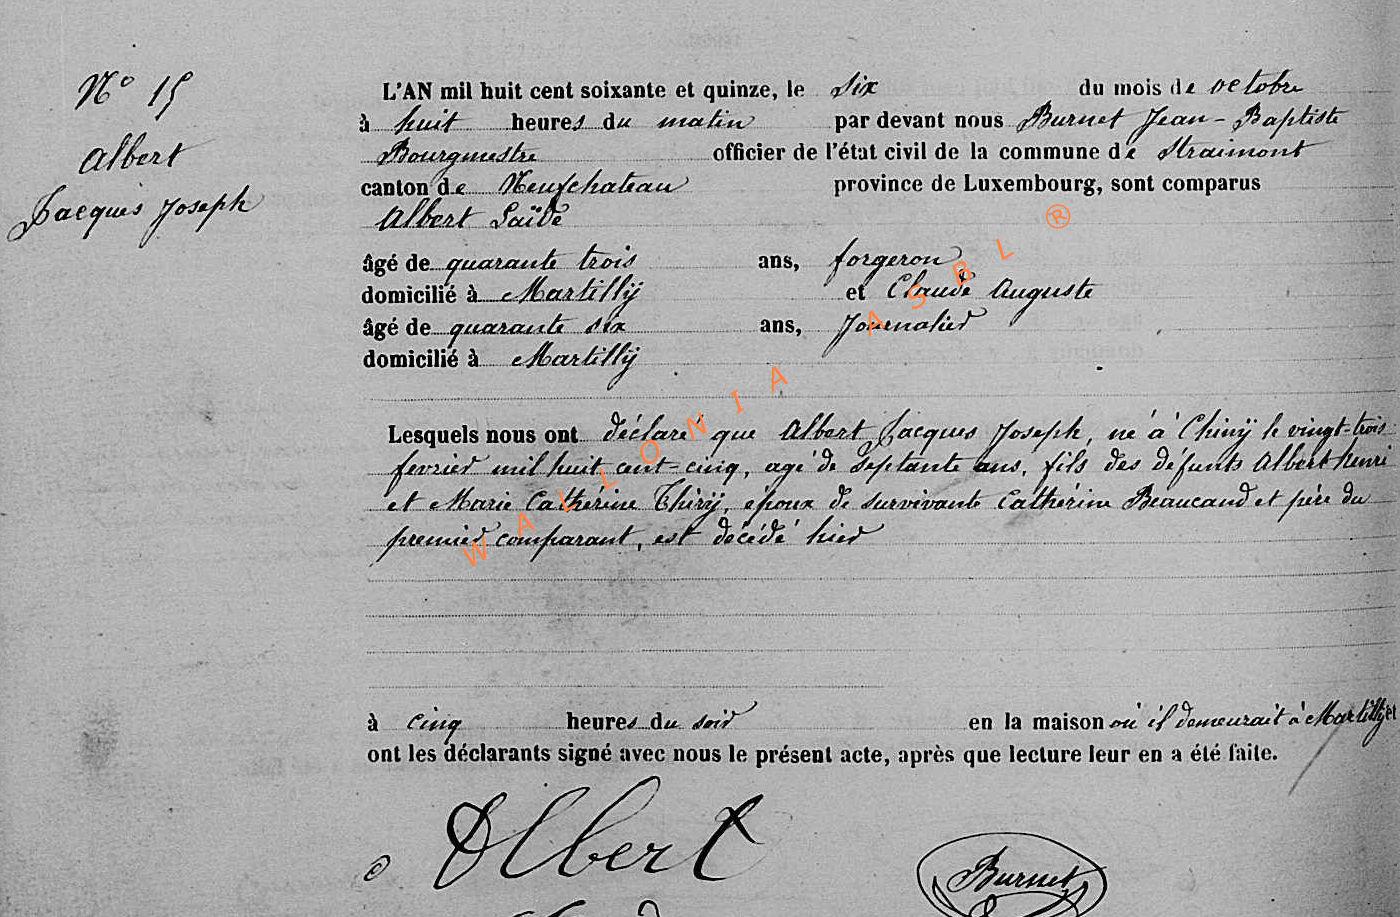 N° 15
Albert
Jacques Joseph
L'AN mil huit cent soixante et quinze, le six du mois de octobre
à huit heures du matin par devant nous Burnet Jean-Baptiste
Bourgmestre officier de l'état civil de la commune de Straimont
canton de Neufchateau province de Luxembourg, sont comparus
Albert Laïde
âgé de quarante trois ans, forgeron
domicilié à Martilly et Claude Auguste
âgé de quarante six ans, Journalier
domicilié à Martilly
Lesquels nous ont déclaré que Albert Jacques Joseph, né à Chiny le vingt-trois
fevrier mil huit cent-cinq, agé de septante ans, fils des défunts Albert henri
et Marie Catherine Thiry, époux de survivante Cathérine Beaucand et père du
premier comparant, est décédé hier
à cinq heures du soir en la maison où il demeurait à Martilly et
ont les déclarants signé avec nous le présent acte, après que lecture leur en a été faite.
Albert
Burnet
WALLONIA ASBL ®